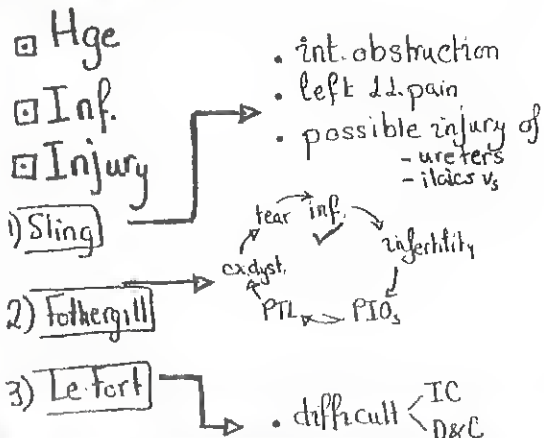 Hge
Inf.
Injury
• int. obstruction
• left LL. pain
• possible injury of
- ureters
- iliacs vs
1) Sling
2) Fothergill
tear
inf.
infertility
PIOs
PTL
cx.dyst.
3) Le-fort
• difficult
IC
D&C